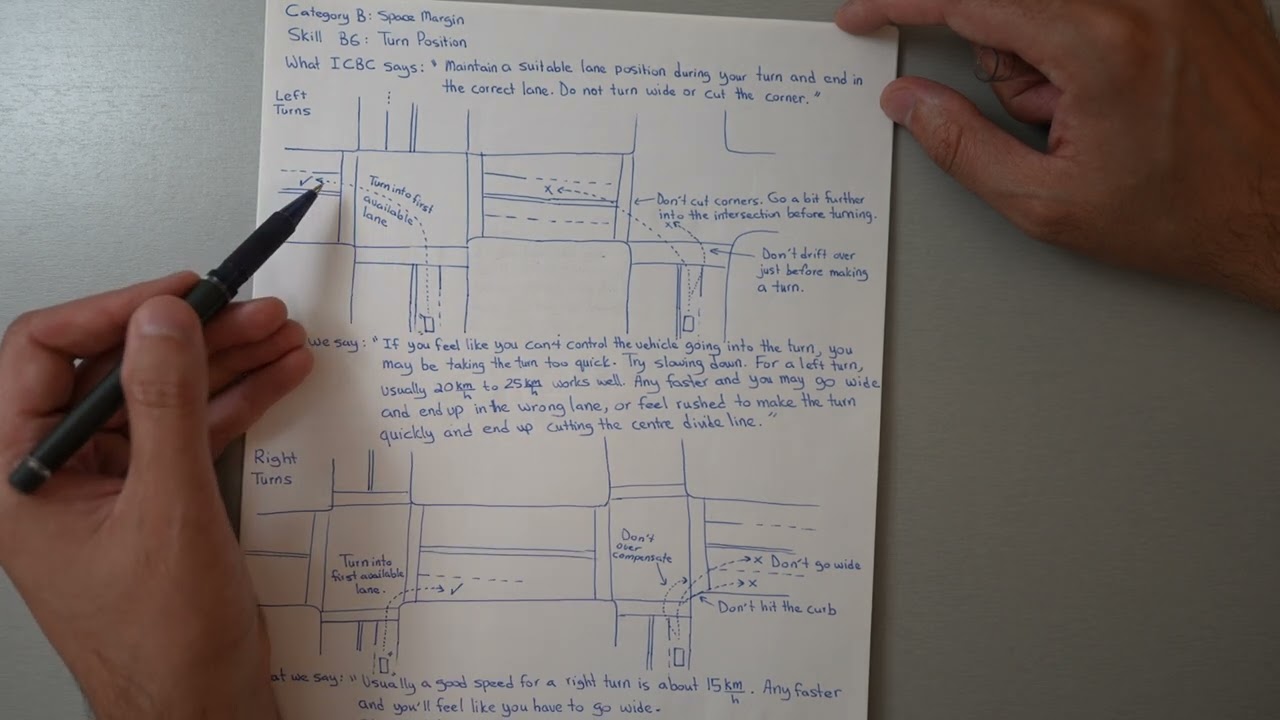 Category B: Space Margin
Skill B6: Turn Position
What ICBC says: "Maintain a suitable lane position during your turn and end in
the correct lane. Do not turn wide or cut the corner."
Left
Turns
✓
Turn into first
available
lane
x
Don't cut corners. Go a bit further
into the intersection before turning.
x
Don't drift over
just before making
a turn.
we say: "If you feel like you can't control the vehicle going into the turn, you
may be taking the turn too quick. Try slowing down. For a left turn,
usually 20 km/h to 25 km/h works well. Any faster and you may go wide
and end up in the wrong lane, or feel rushed to make the turn
quickly and end up cutting the centre divide line."
Right
Turns
Turn into
first available
lane.
✓
Don't
over
compensate
x Don't go wide
x
Don't hit the curb
at we say: "Usually a good speed for a right turn is about 15 km/h. Any faster
and you'll feel like you have to go wide.